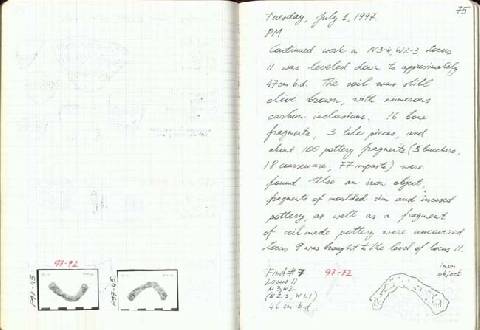 97-92
PN97-45
PN97-45
75
Tuesday, July 1, 1997
PM
Continued work in N34, W2-3 locus
11 was leveled down to approximately
47cm b.d. The soil was still
olive brown, with numerous
carbon inclusions. 16 bone
fragments, 3 tile pieces, and
about 105 pottery fragments (3 bucchero,
18 coarseware, 77 impasto) were
found. Also an iron object,
fragments of moulded rim and incised
pottery, as well as a fragment
of coil made pottery were uncovered
Locus 9 was brought to the level of locus 11.
Find # 7 97-92
iron
object
Locus 11
46 cm b.d